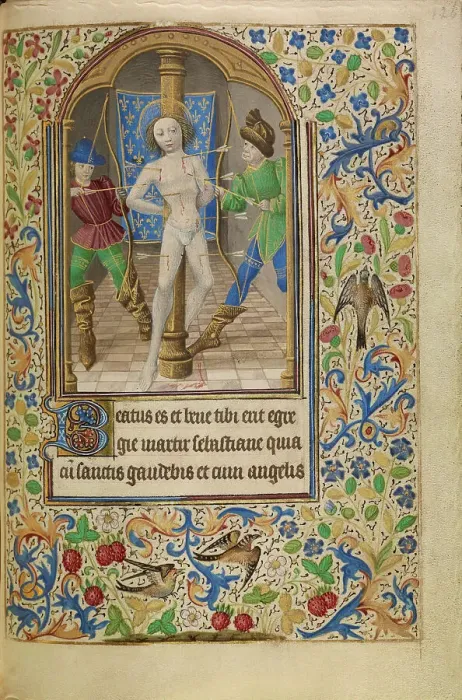 126
Beatus es et bene tibi erit egre
gie martir sebastiane quia
cū sanctis gaudebis et cum angelis